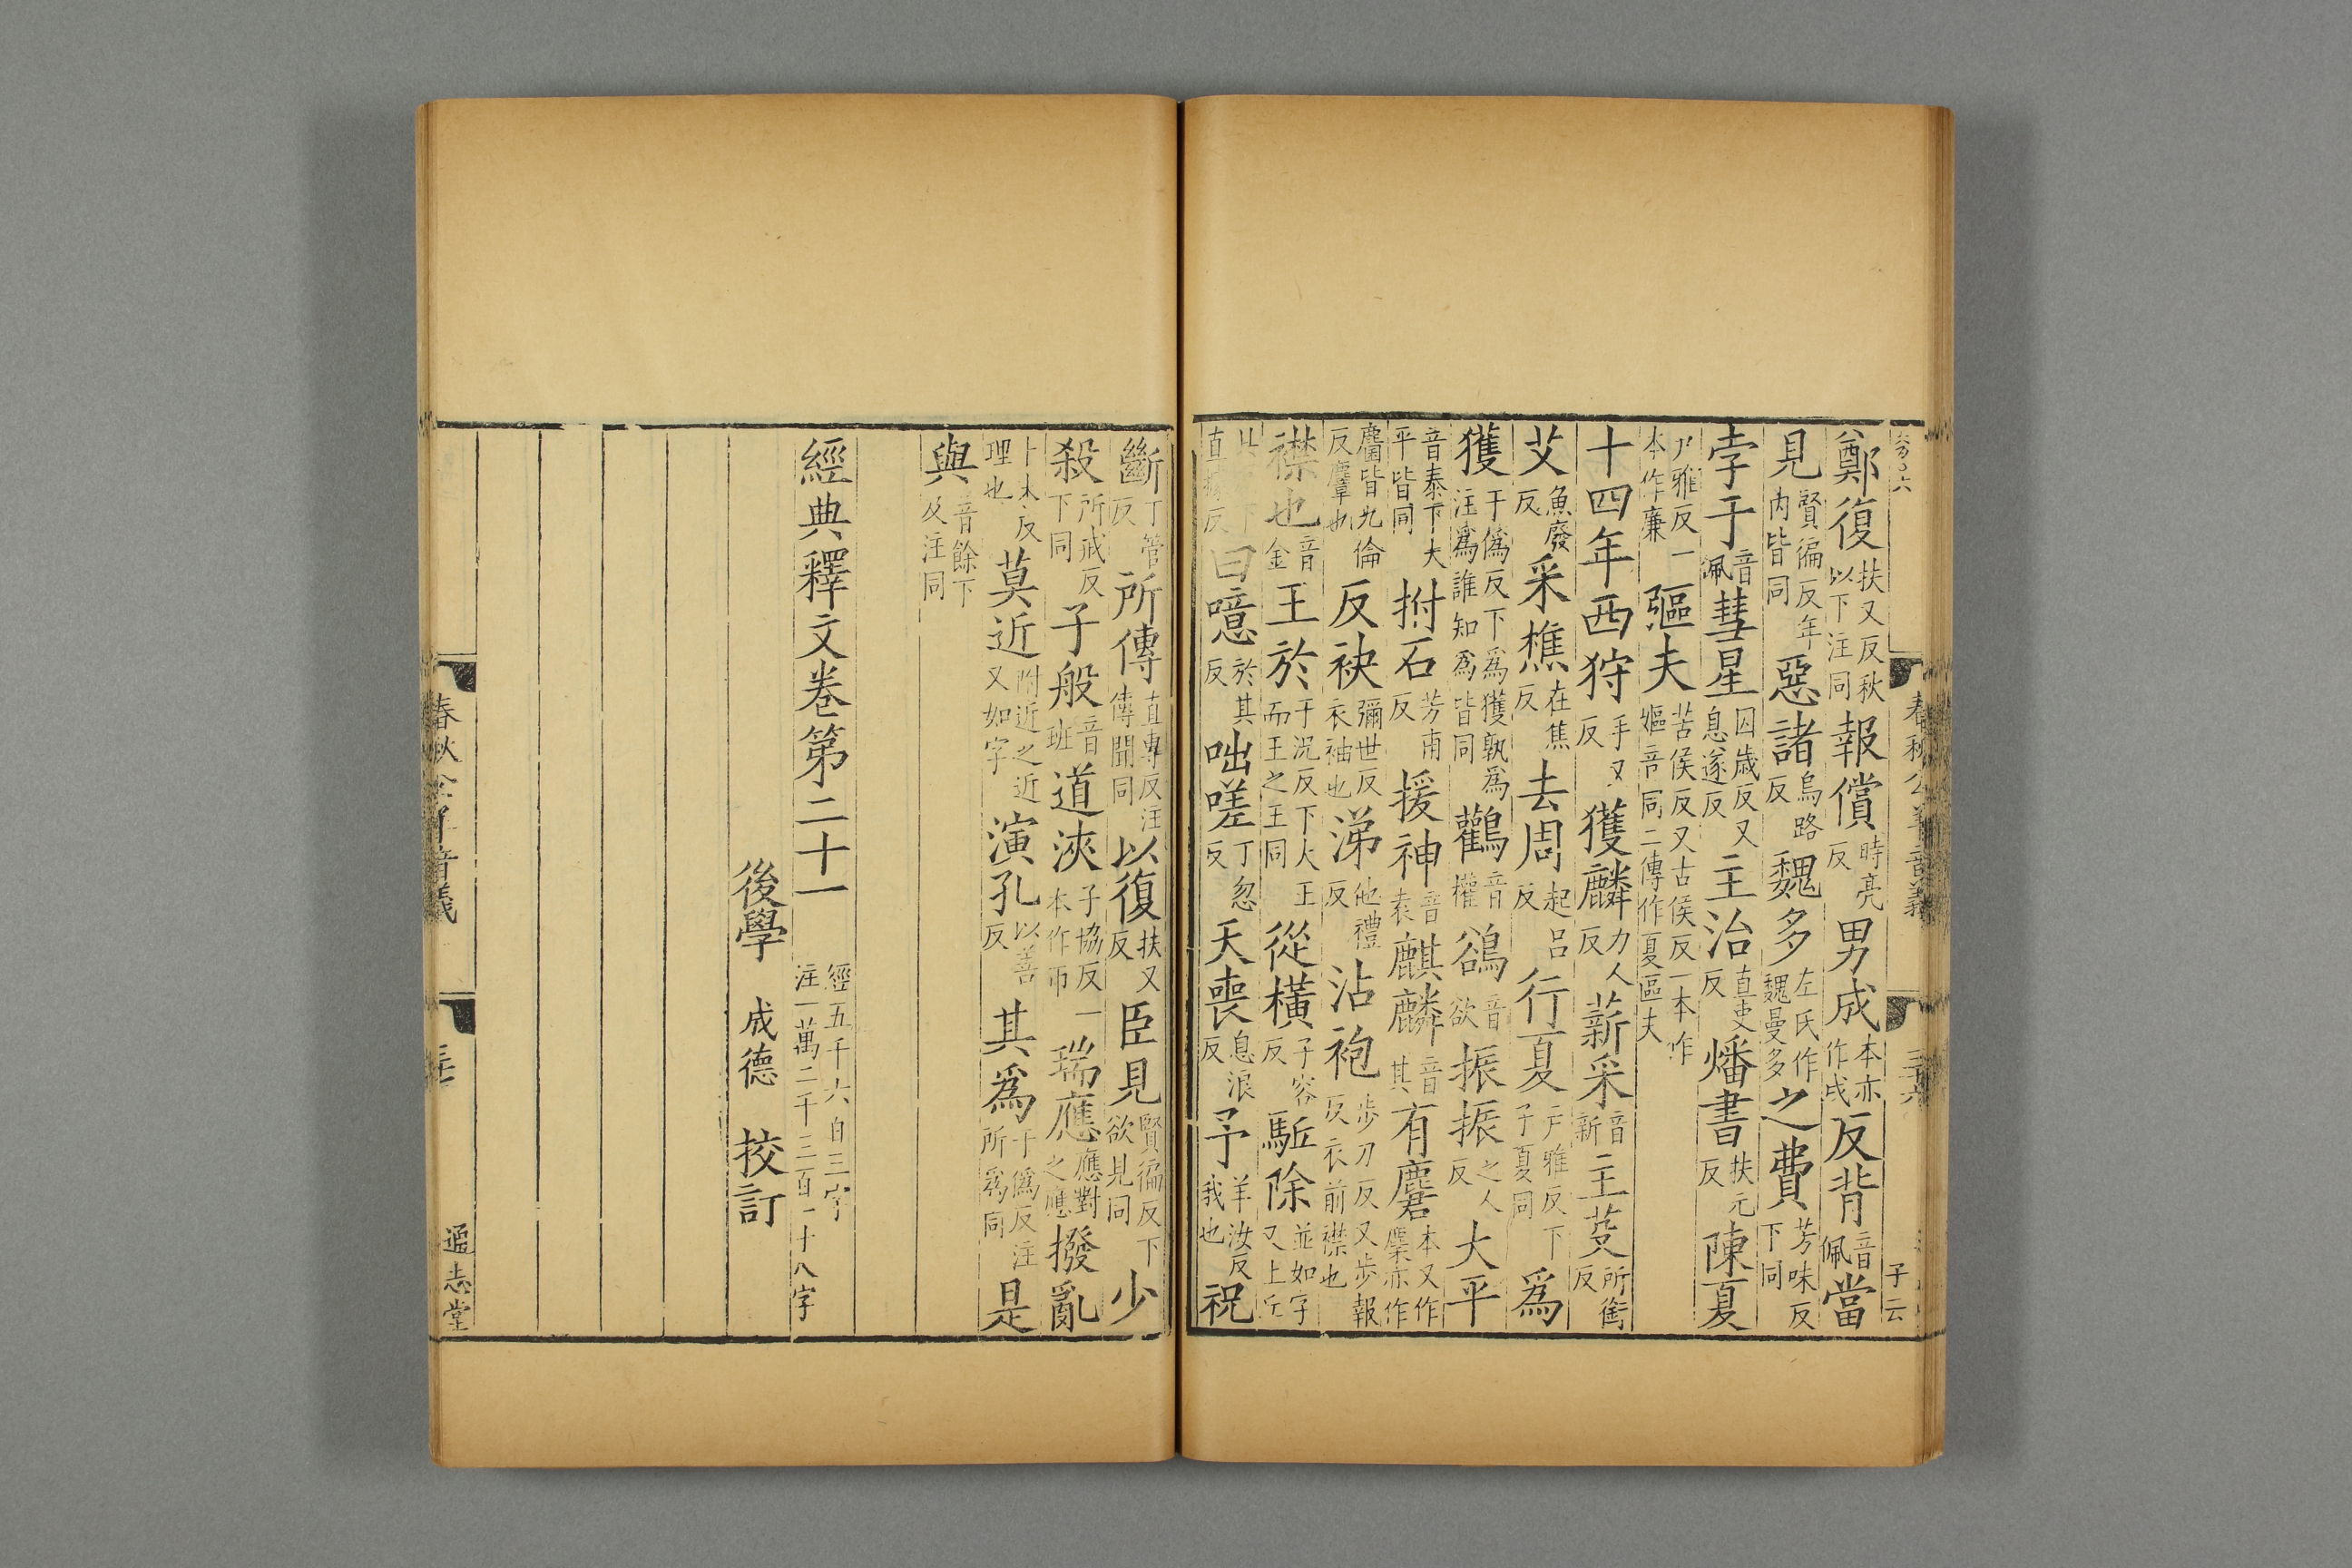 春秋公羊音義
三六
子云
鄭復扶又反秋以下注同報償時亮反男成本亦作戌反背音佩當
見賢徧反年內皆同惡諸烏路反魏多左氏作魏曼多之費芳味反下同
孛于音佩彗星囚歲反又息遂反主治直吏反燔書扶元反陳夏
戶雅反一本作廉彄夫苦侯反又古侯反一本作嫗音同二傳作夏區夫
十四年西狩手又反獲麟力人反薪采音新主芟所銜反
艾魚廢反采樵在焦反去周起呂反行夏戶雅反下子夏同爲
獲于僞反下爲獲孰爲注爲誰知爲皆同鸛音權鵒音欲振振之人反大平
音泰下大平皆同拊石芳甫反援神音袁麒麟音其有麏本又作麇亦作
麕皆九倫反麞也反袂彌世反衣袖也涕他禮反沾袍步刀反又步報反衣前襟也
襟也音金王於于況反下大王而王之王同從橫子容反駈除並如字又上丘
曰噫於其反咄嗟丁忽反天喪息浪反予羊汝反我也祝
斷丁管反所傳直專反注傳聞同以復扶又反臣見賢徧反下欲見同少
殺所戒反下同子般音班道浹子協反一本作帀瑞應應對之應撥亂
卜末反理也莫近附近之近又如字演孔以善反其爲于僞反注所爲同是
與音餘下及注同
經典釋文卷第二十一經五千六百三字注一萬二千三百一十八字
後學 成德 挍訂
春秋公羊音義
通志堂